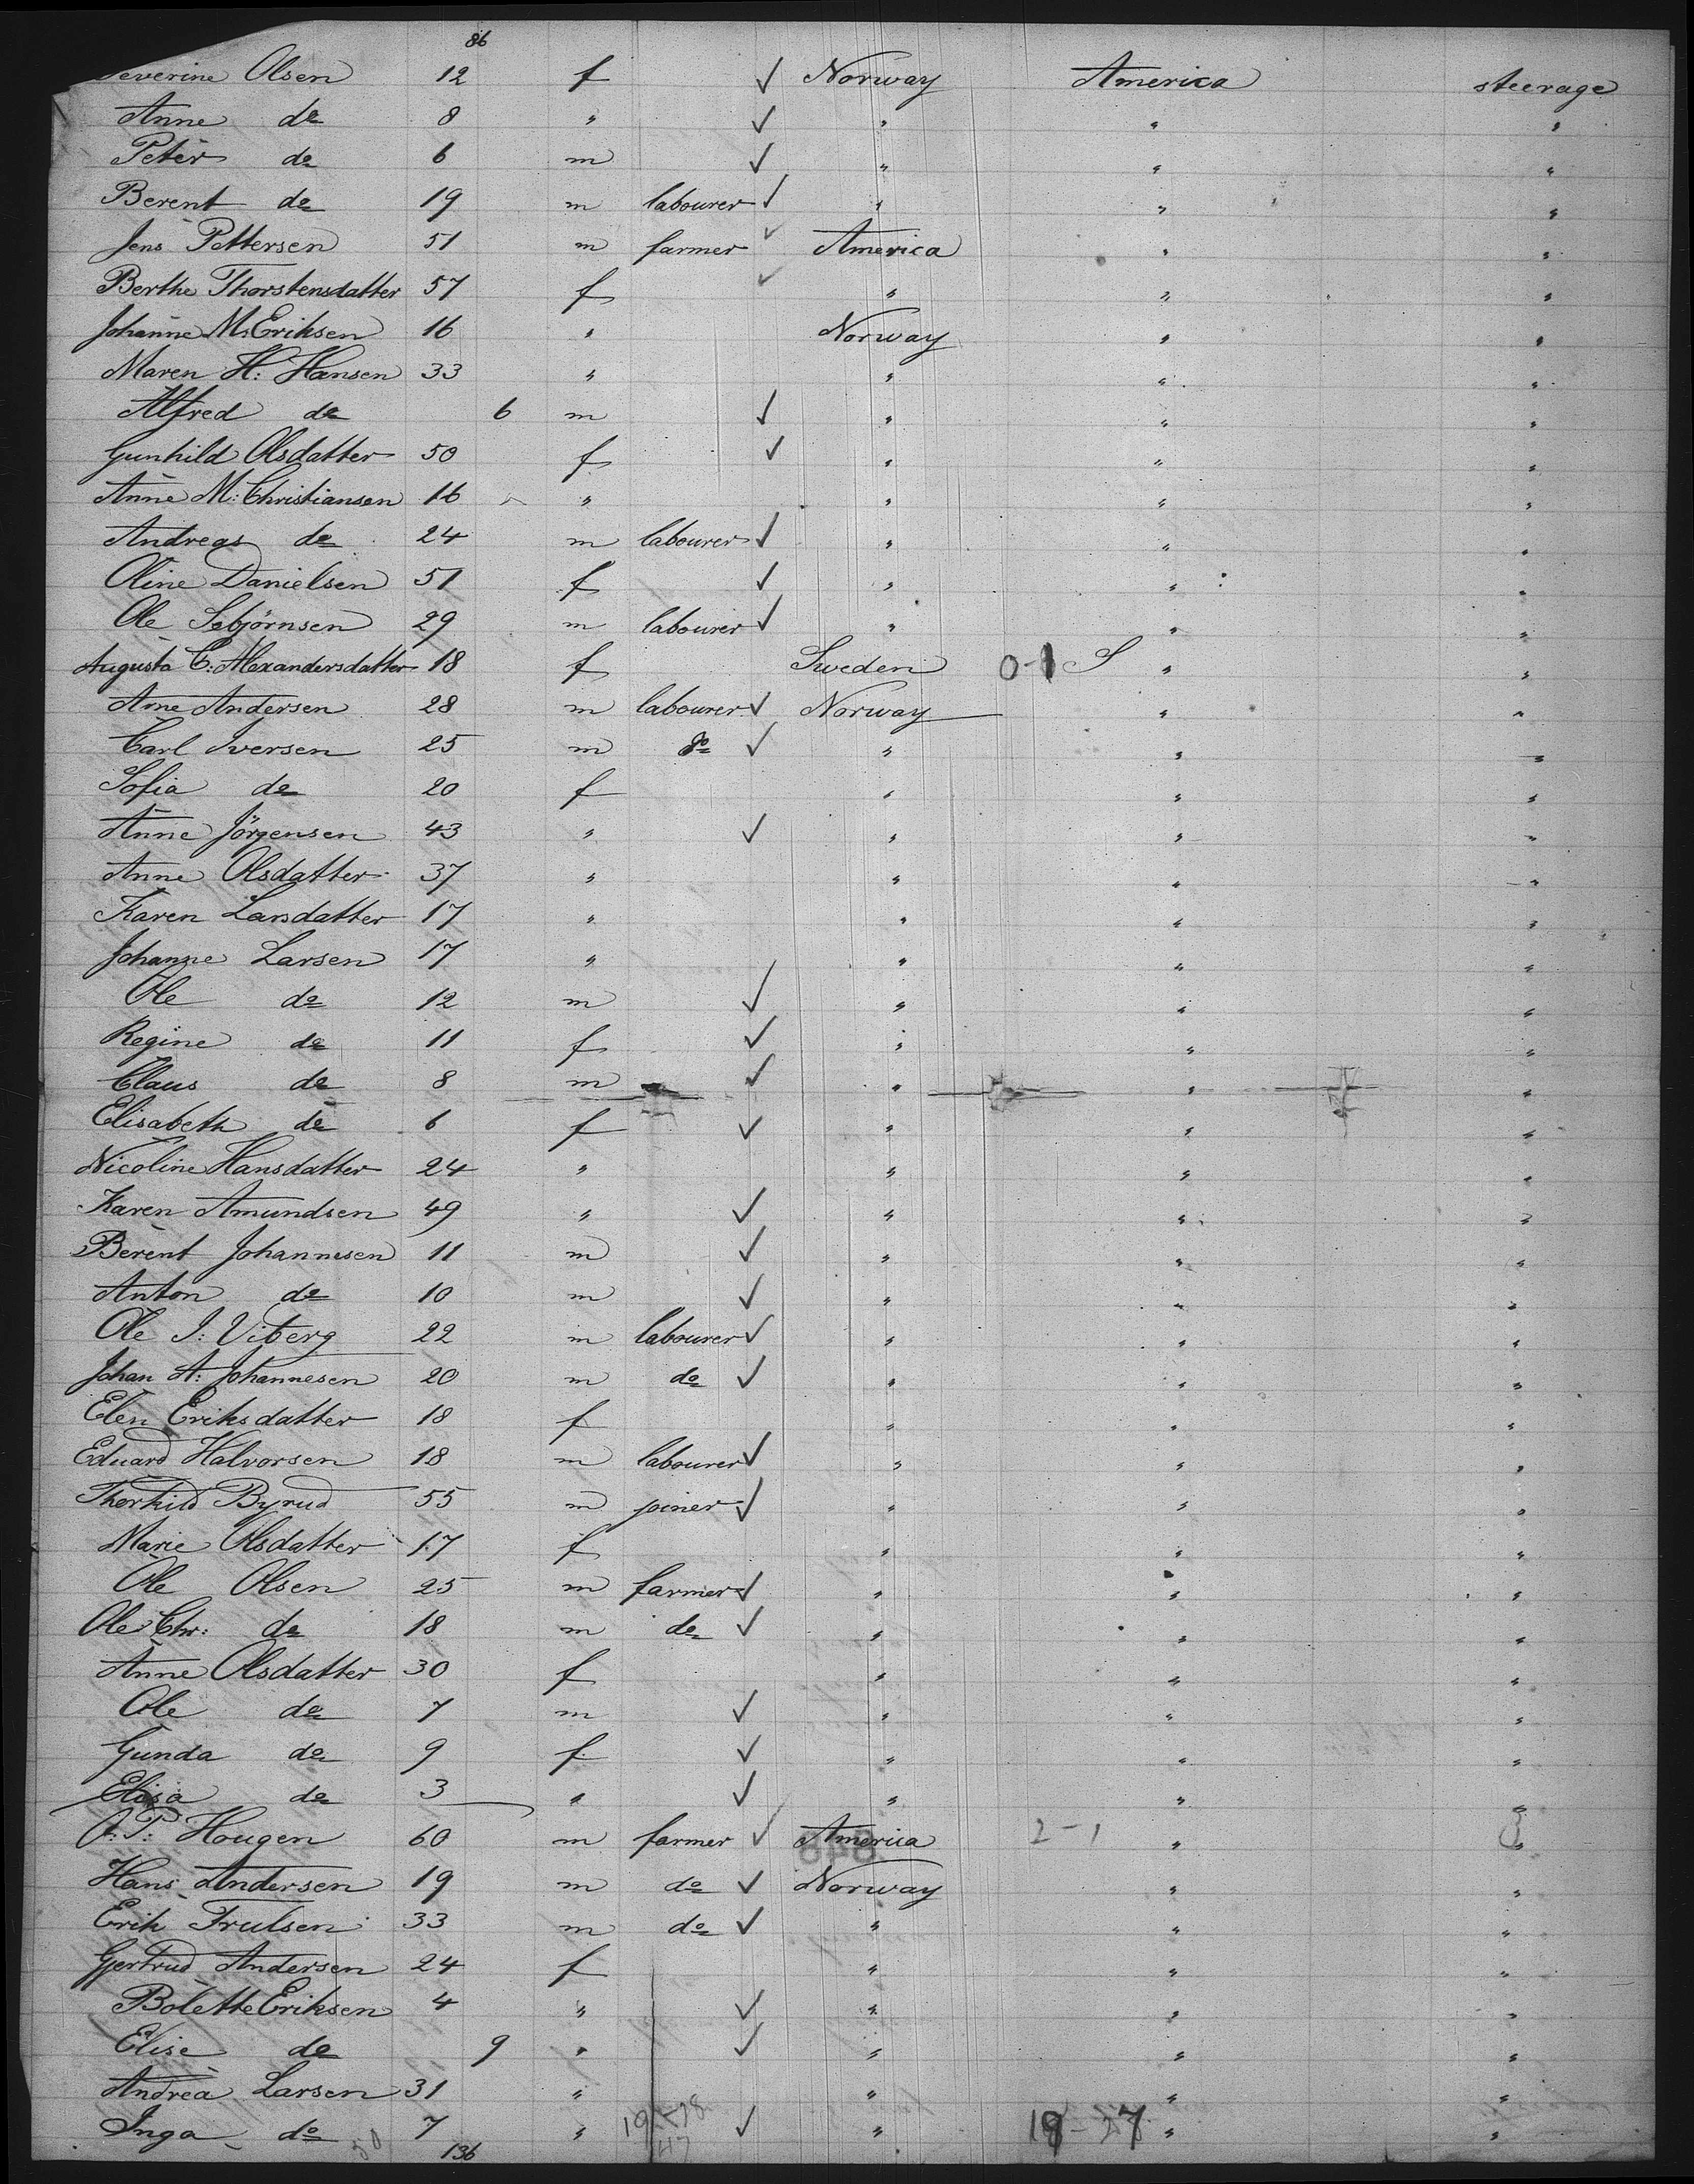 86
Severine Olsen 12 f ✓ Norway America steerage
Anne do 8 " ✓ " " "
Peter do 6 m ✓ " " "
Berent do 19 m labourer ✓ " " "
Jens Pettersen 51 m farmer ✓ America " "
Berthe Thorstensdatter 57 f ✓ " " "
Johanne M. Eriksen 16 " Norway " "
Maren H: Hansen 33 " " " "
Alfred do 6 m ✓ " " "
Gunhild Olsdatter 50 f ✓ " " "
Anne M: Christiansen 16 " " " "
Andreas do 24 m labourer ✓ " " "
Oline Danielsen 51 f ✓ " " "
Ole Sebjörnsen 29 m labourer ✓ " " "
Augusta C: Alexandersdatter 18 f Sweden 0-1 S " "
Arne Andersen 28 m labourer ✓ Norway " "
Carl Iversen 25 m do ✓ " " "
Sofia do 20 f " " "
Anne Jörgensen 43 " ✓ " " "
Anne Olsdatter 37 " " " "
Karen Larsdatter 17 " " " "
Johanne Larsen 17 " " " "
Ole do 12 m ✓ " " "
Regine do 11 f ✓ " " "
Claus do 8 m ✓ " " "
Elisabeth do 6 f ✓ " " "
Nicoline Hansdatter 24 " " " "
Karen Amundsen 49 " ✓ " " "
Berent Johannesen 11 m ✓ " " "
Anton do 10 m ✓ " " "
Ole I: Viberg 22 m labourer ✓ " " "
Johan A: Johannesen 20 m do ✓ " " "
Elen Eriksdatter 18 f " " "
Eduard Halvorsen 18 m labourer ✓ " " "
Thorkild Byrud 55 m joiner ✓ " " "
Marie Olsdatter 17 f " " "
Ole Olsen 25 m farmer ✓ " " "
Ole Chr: do 18 m do ✓ " " "
Anne Olsdatter 30 f " " "
Ole do 7 m ✓ " " "
Gunda do 9 f ✓ " " "
Elisa do 3 " ✓ " " "
Hougen 60 m farmer ✓ America 2-1 " "
Hans Andersen 19 m do ✓ Norway " "
Erik Trulsen 33 m do ✓ " " "
Gjertrud Andersen 24 f " " "
Bolette Eriksen 4 " ✓ " " "
Elise do 9 " ✓ " " "
Andrea Larsen 31 " " " "
Inga do 7 " ✓ " " "
50 136